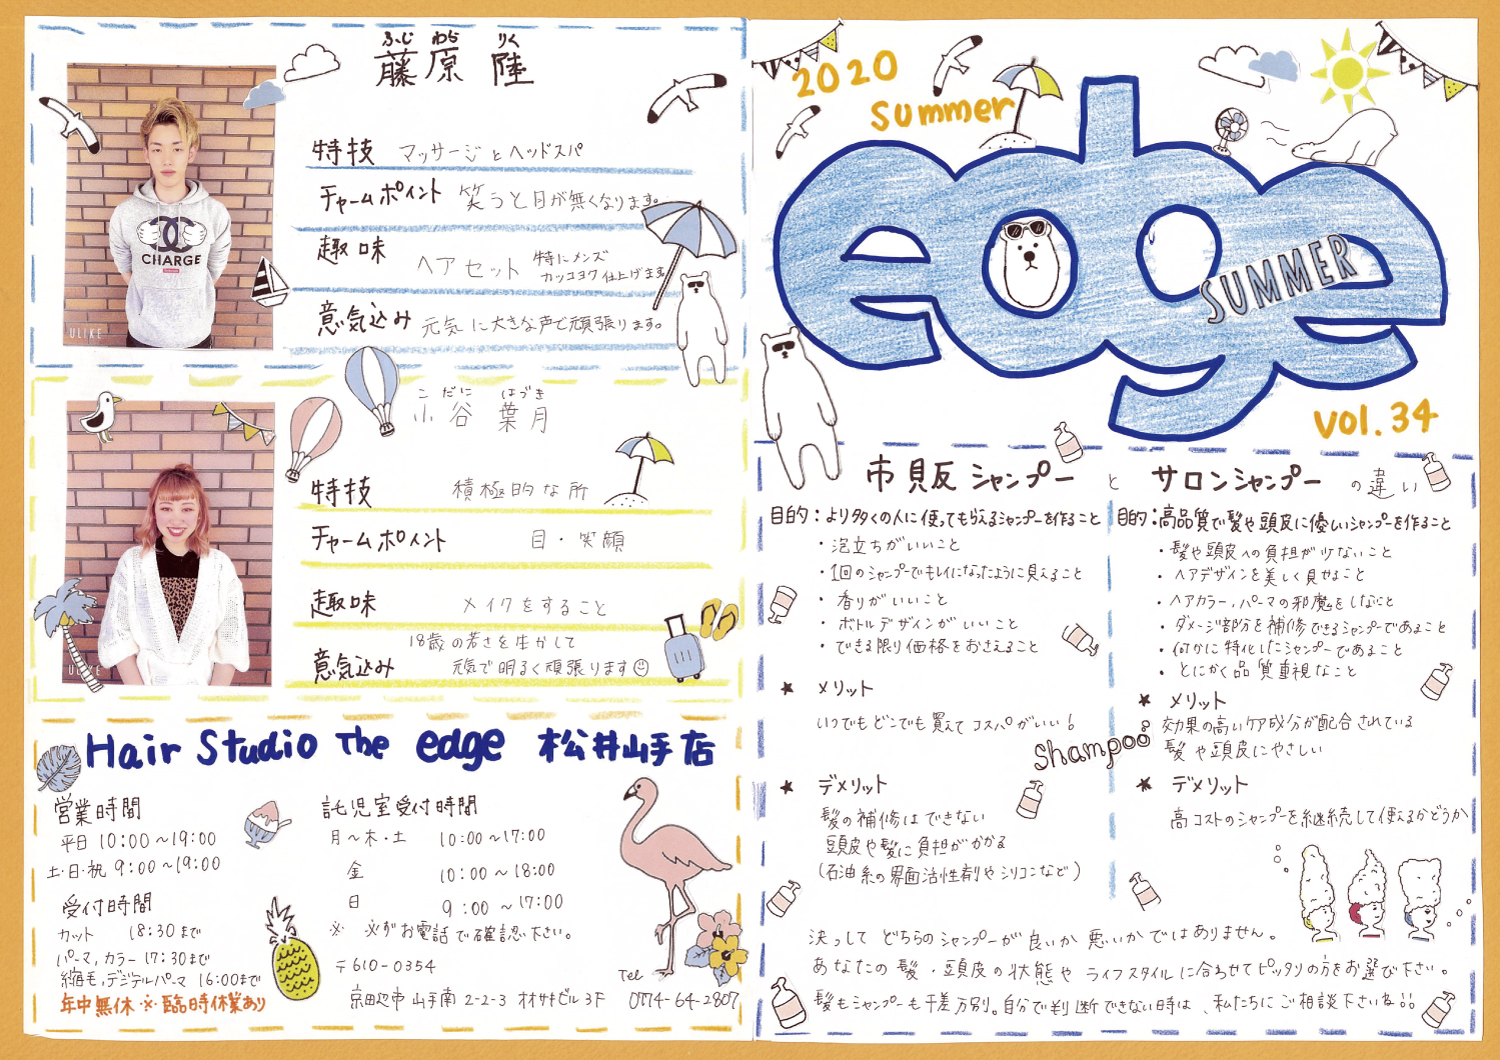 藤原 陸
ふじ わら りく
CHARGE
ULIKE
特技 マッサージとヘッドスパ
チャームポイント 笑うと目が無くなります。
趣味 ヘアセット 特にメンズ
カッコヨク仕上げます
意気込み 元気に大きな声で頑張ります。
こだに はづき
小谷 葉月
ULIKE
特技 積極的な所
チャームポイント 目・笑顔
趣味 メイクをすること
意気込み 18歳の若さを生かして
元気で明るく頑張ります
Hair Studio The edge 松井山手店
営業時間
平日 10:00〜19:00
土・日・祝 9:00〜19:00
受付時間
カット 18:30まで
パーマ,カラー 17:30まで
縮毛,デジタルパーマ 16:00まで
年中無休 ※臨時休業あり
託児室受付時間
月〜木・土 10:00〜17:00
金 10:00〜18:00
日 9:00〜17:00
※ 必ずお電話で確認下さい。
〒610-0354
京田辺市山手南2-2-3 オオサキビル3F
Tel 0774-64-2807
2020
summer
edge
SUMMER
vol.34
市販シャンプー と サロンシャンプー の違い
目的:より多くの人に使ってもらえるシャンプーを作ること
・泡立ちがいいこと
・1回のシャンプーでキレイになったように見えること
・香りがいいこと
・ボトルデザインがいいこと
・できる限り価格をおさえること
★ メリット
いつでもどこでも買えてコスパがいい!
★ デメリット
髪の補修はできない
頭皮や髪に負担がかかる
(石油系の界面活性剤やシリコンなど)
目的:高品質で髪や頭皮に優しいシャンプーを作ること
・髪や頭皮への負担が少ないこと
・ヘアデザインを美しく見せること
・ヘアカラー,パーマの邪魔をしないこと
・ダメージ部分を補修できるシャンプーであること
・何かに特化したシャンプーであること
・とにかく品質重視なこと
★ メリット
効果の高いケア成分が配合されている
髪や頭皮にやさしい
★ デメリット
高コストのシャンプーを継続して使えるかどうか
shampoo
決っして どちらのシャンプーが良いか悪いかではありません。
あなたの髪・頭皮の状態やライフスタイルに合わせてピッタリの方をお選び下さい。
髪もシャンプーも千差万別。自分で判断できない時は、私たちにご相談下さいね!!